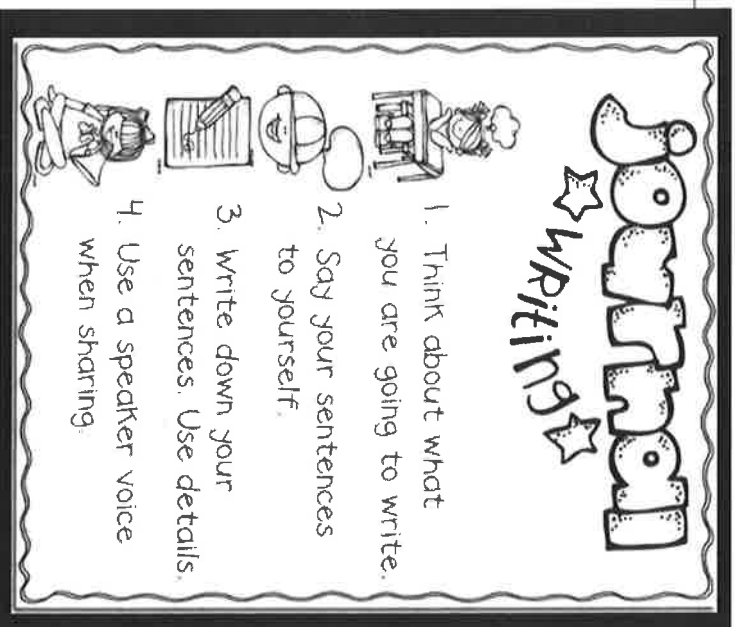 journal
WRiting
1. Think about what
you are going to write.
2. Say your sentences
to yourself.
3. Write down your
sentences. Use details.
4. Use a speaker voice
when sharing.